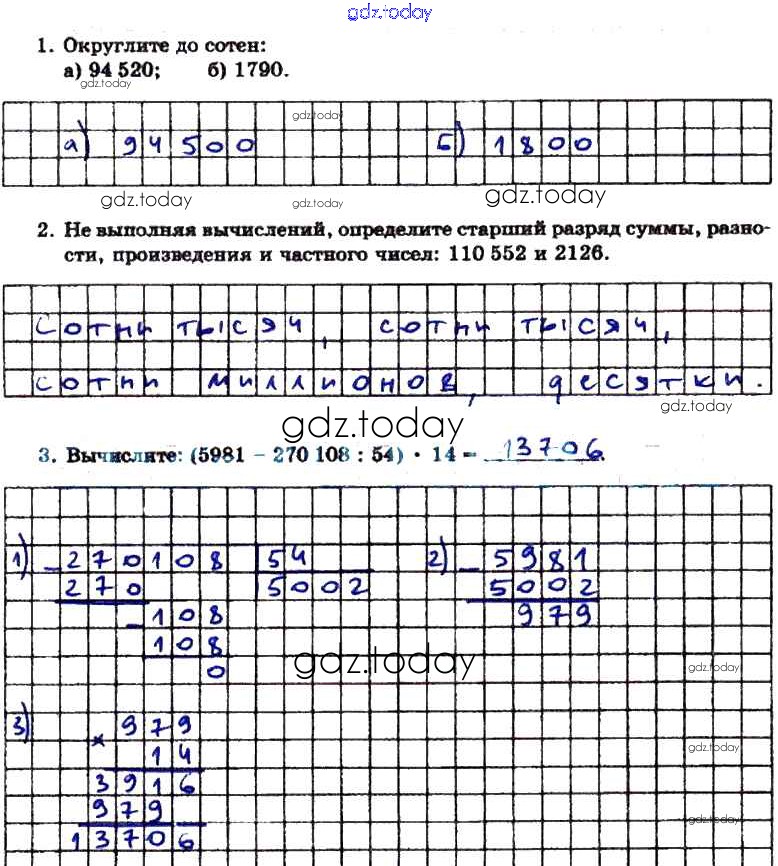 gdz.today
1. Округлите до сотен:
а) 94 520; б) 1790.
gdz.today
gdz.today
а) 94500 б) 1800
gdz.today gdz.today gdz.today
2. Не выполняя вычислений, определите старший разряд суммы, разно-
сти, произведения и частного чисел: 110 552 и 2126.
сотни тысяч, сотни тысяч,
сотни миллионов, десятки.
gdz.today
gdz.today
3. Вычислите: (5981 – 270 108 : 54) · 14 = 13706.
1) – 270108 54 2) – 5981
270 5002 5002
– 108 979
108
0
gdz.today
gdz.today
3) × 979
14
gdz.today
3916
979
gdz.today
13706